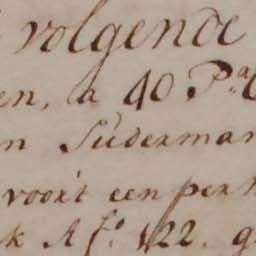 volgende
en, a 40 Pa
n Suderman
voort een per
k A fo. 122. g